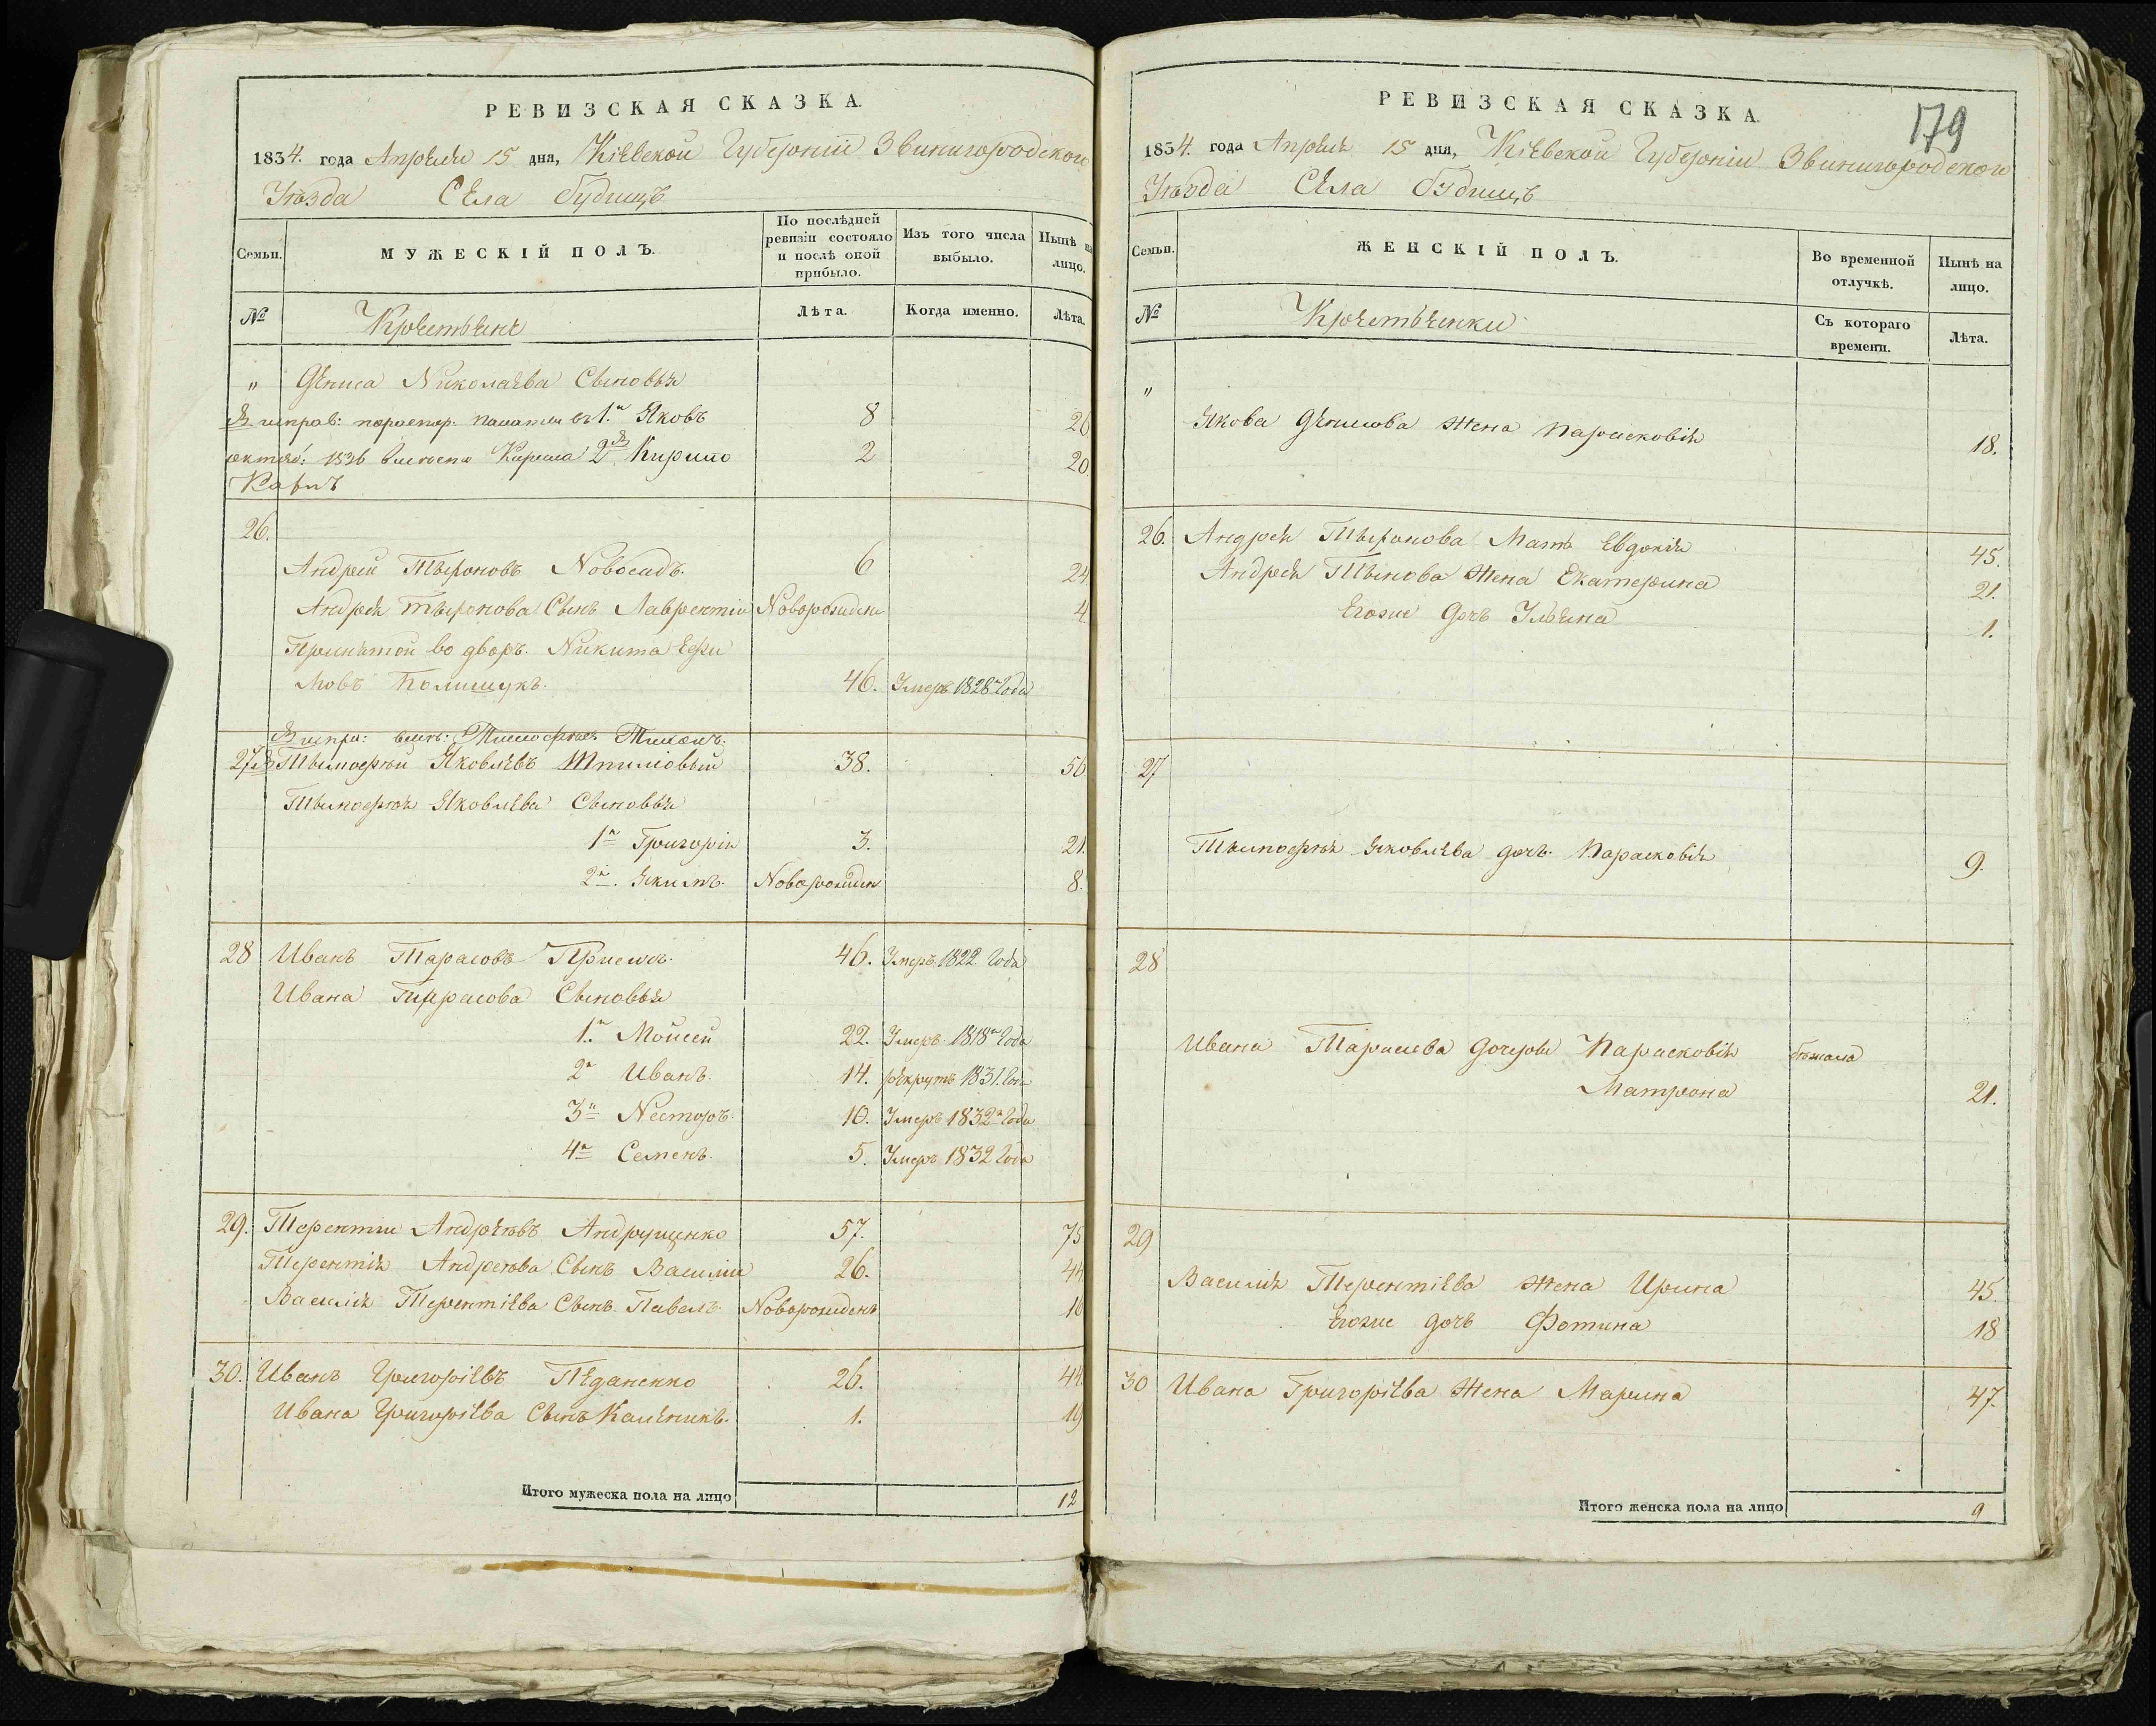 РЕВИЗСКАЯ СКАЗКА.
1834. года Апрѣля 15 дня, Кіевской Губерніи Звинигородской
Уѣзда Села Будищъ
Семьи.
МУЖЕСКІЙ ПОЛЪ.
По послѣдней ревизіи состояло и послѣ оной прибыло.
Изъ того числа выбыло.
Нынѣ на лицо.
№
Крестьяне
Лѣта.
Когда именно.
Лѣта.
" Дениса Николаева Сыновья
1й Яковъ 8 26
1836 вместо Кирила 2й Кирило 2 20
Карпъ
26.
Андрей Мыроновъ Новосадъ. 6 24
Андрея Мыронова Сынъ Лаврентій Новорожденъ 4
Принятой во дворъ. Никита Ефи
мовъ Полищукъ. 46. Умеръ 1828го Года
Тимофея. Тихонъ.
27 Тымофѣй Яковлевъ Шпиліовый 38. 56
Тымофѣя Яковлева Сыновья
1й Григорій 3. 21.
2й. Якимъ. Новорожден 8.
28 Иванъ Тарасовъ 46. Умеръ 1822 Года
Ивана Тарасова Сыновья
1й Мойсей 22. Умеръ 1818го Года
2й Иванъ. 14. рекрутъ 1831. Года
3й Несторъ. 10. Умеръ 1832го Года
4й Семенъ. 5. Умеръ 1832 Года
29. Терентій Андреевъ Андрущенко 57. 75
Терентія Андреева Сынъ Василій 26. 44
Василія Терентіева Сынъ. Павелъ. Новорожденъ 16
30. Иванъ Григоріевъ Педаненко 26. 44.
Ивана Григоріева Сынъ Каленикъ. 1. 19
Итого мужеска пола на лицо 12
РЕВИЗСКАЯ СКАЗКА.
179
1834. года Апрѣля 15 дня, Кіевской Губерніи Звинигородской
Уѣзда Села Будищъ
Семьи.
ЖЕНСКІЙ ПОЛЪ.
Во временной отлучкѣ.
Нынѣ на лицо.
№
Крестьянки
Съ котораго времени.
Лѣта.
"
Якова Денисова Жена Парасковія 18.
26. Андрея Мыронова Мать Евдокія 45.
Андрея Мынова Жена Екатерина 21.
Егоже Дочь Ульяна 1.
27
Тымофѣя Яковлева дочь. Парасковія 9.
28
Ивана Тарасева Дочери Парасковія бѣжала
Матрона 21.
29
Василія Терентіева Жена Ирина 45.
Егоже дочь Фотина 18
30 Ивана Григоріева Жена Марина 47.
Итого женска пола на лицо 9